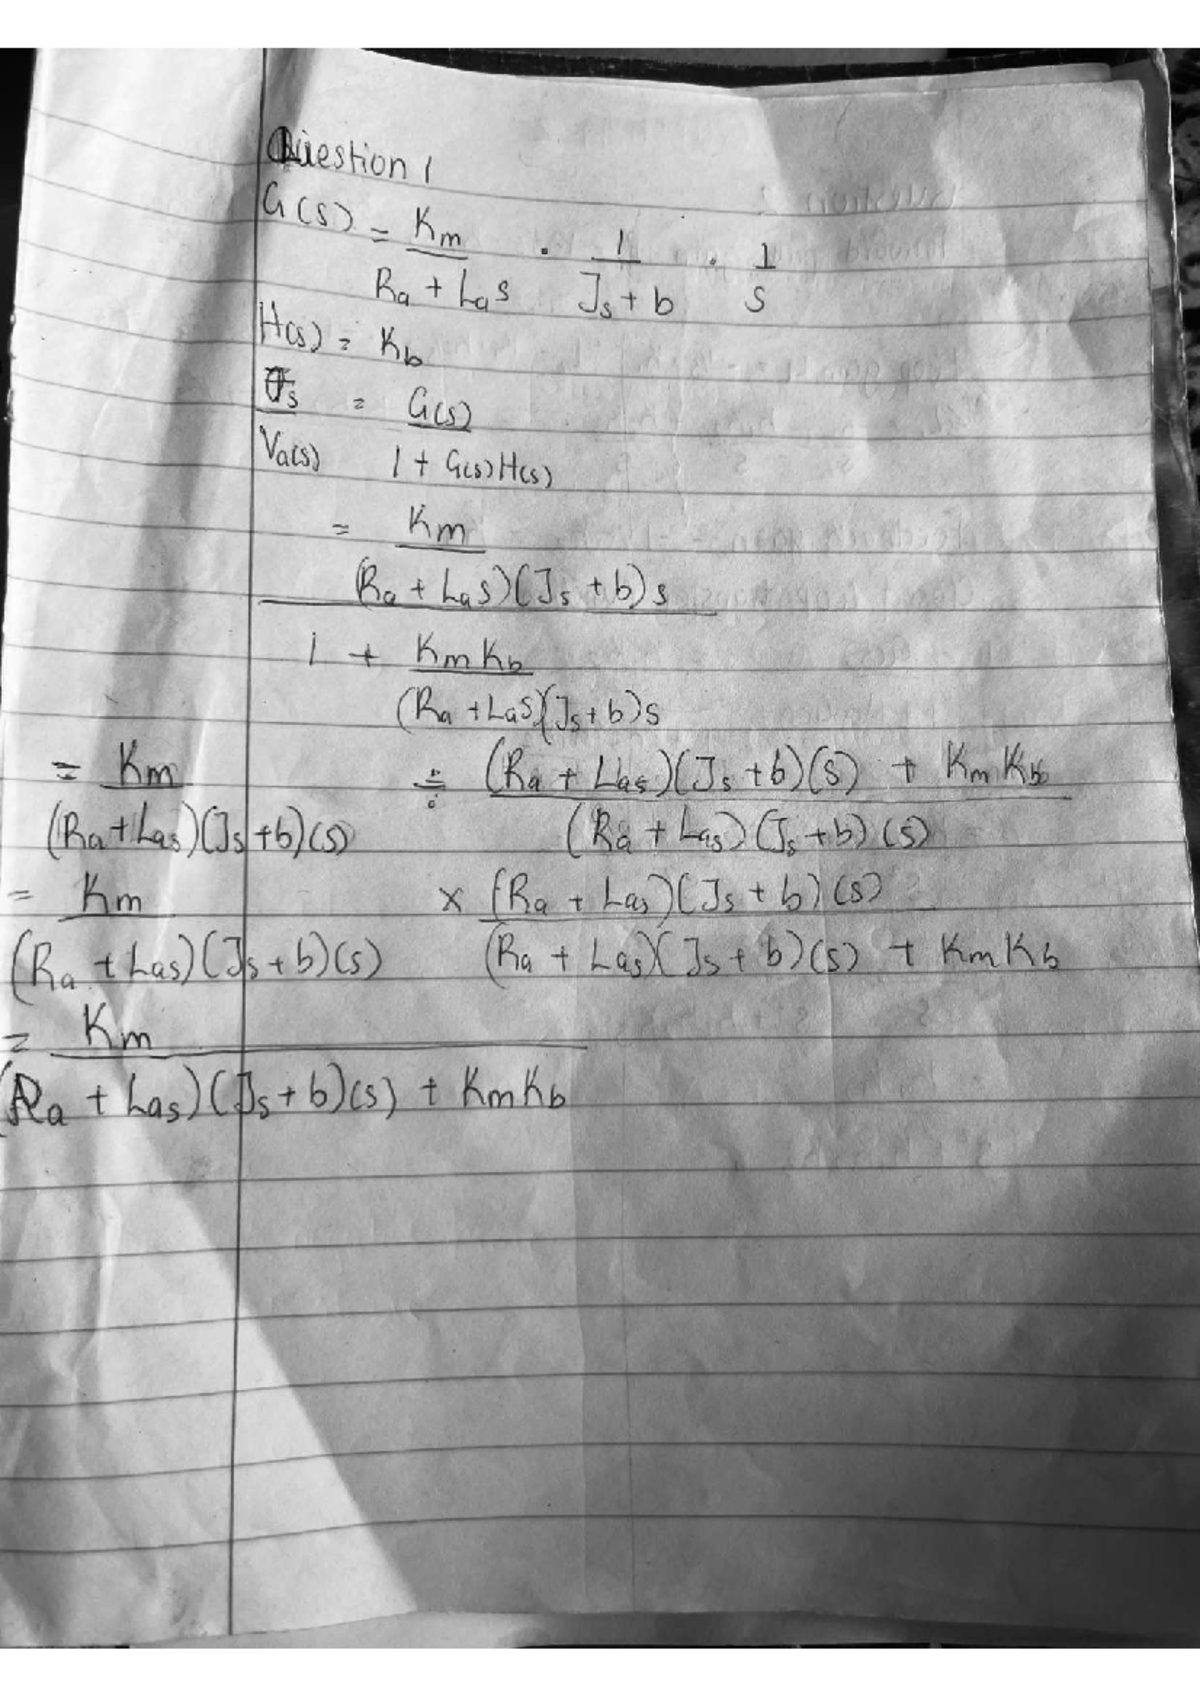 Question 1
G(s) = Km / Ra + Las · 1 / Js + b · 1 / s
H(s) = Kb
θs / Va(s) = G(s) / 1 + G(s)H(s)
= Km / (Ra + Las)(Js + b)s
1 + KmKb / (Ra + Las)(Js + b)s
= Km / (Ra + Las)(Js + b)(s) ÷ (Ra + Las)(Js + b)(s) + KmKb / (Ra + Las)(Js + b)(s)
= Km / (Ra + Las)(Js + b)(s) × (Ra + Las)(Js + b)(s) / (Ra + Las)(Js + b)(s) + KmKb
= Km / (Ra + Las)(Js + b)(s) + KmKb